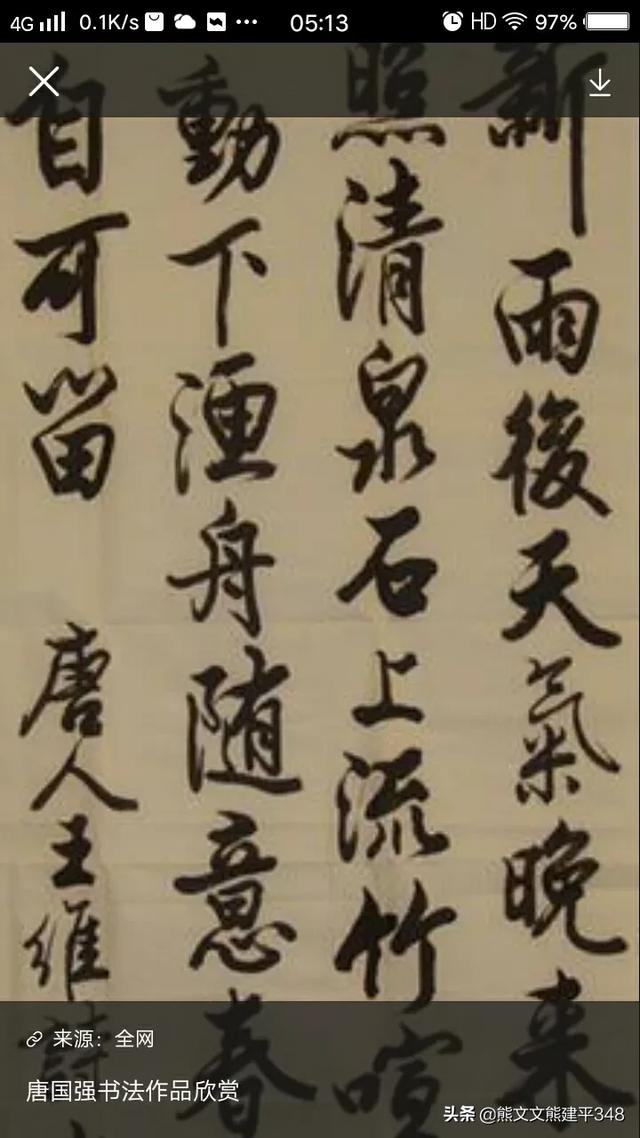 4G 0.1K/s 05:13 HD 97%
新雨後天氣晚来
照清泉石上流竹喧
動下渔舟随意春
自可留
唐人王維詩
来源：全网
唐国强书法作品欣赏
头条 @熊文文熊建平348